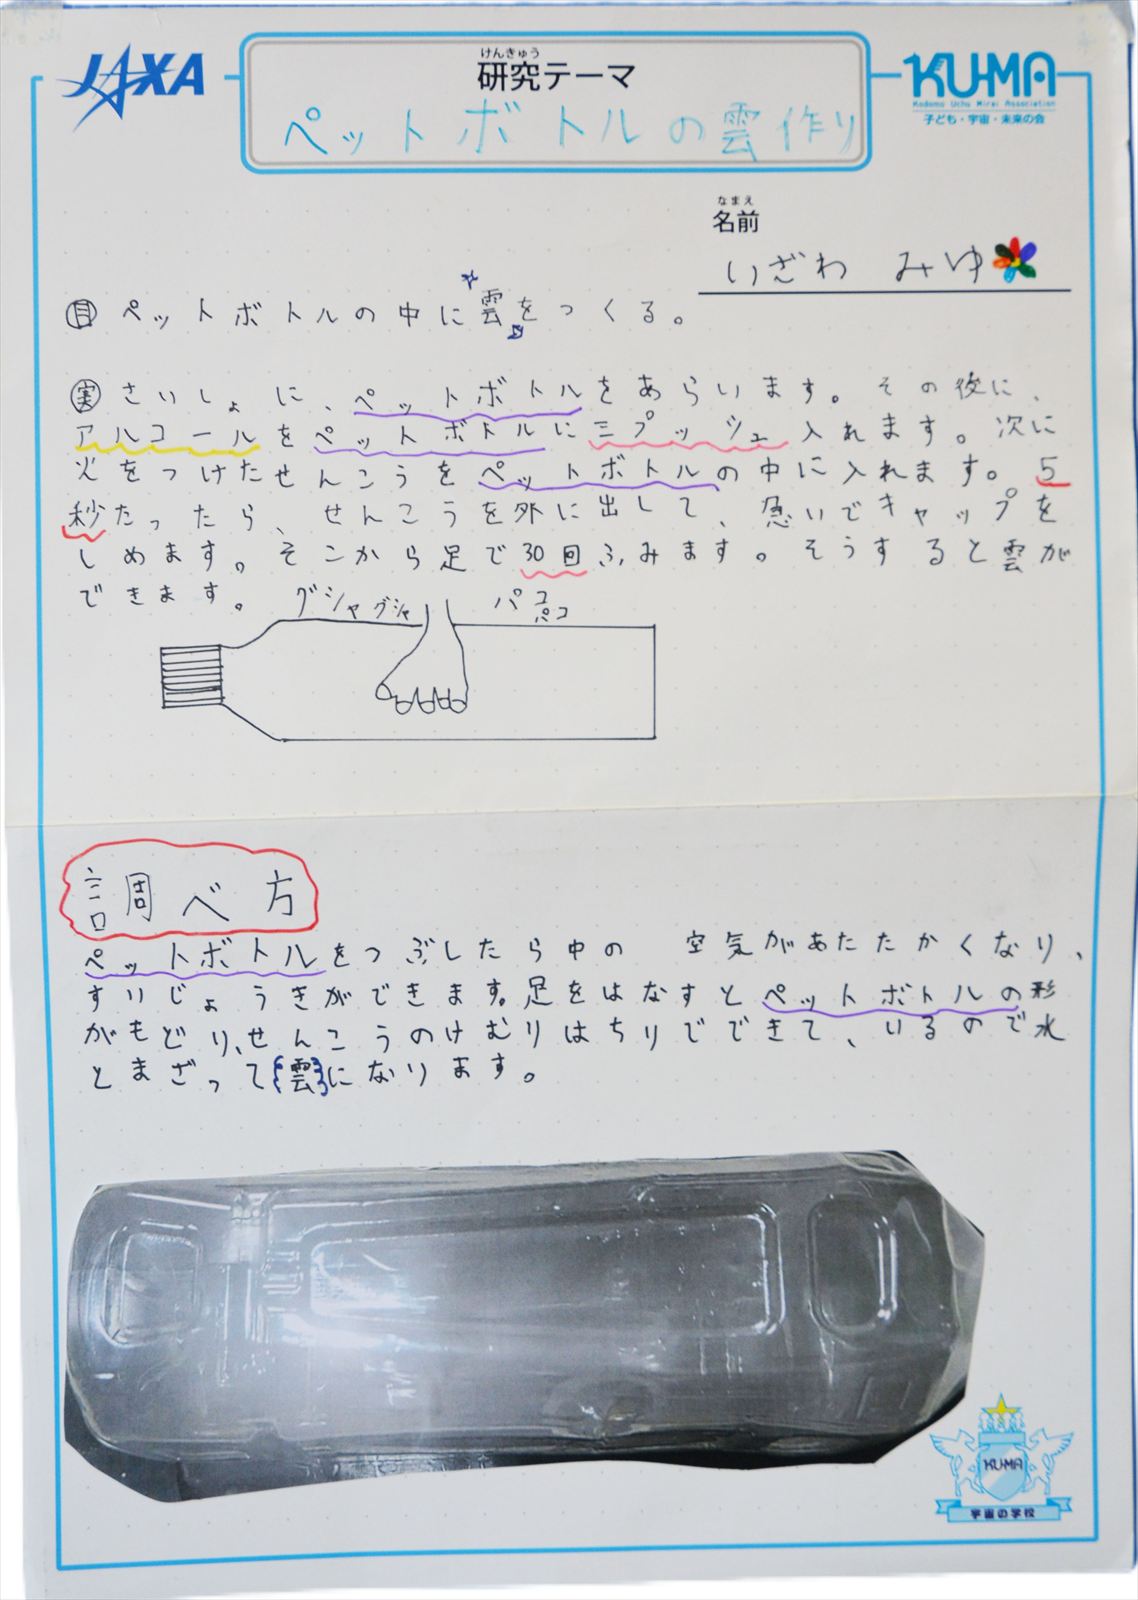 JAXA
けんきゅう
研究テーマ
KU-MA
Kodomo Uchu Mirai Association
子ども・宇宙・未来の会
ペットボトルの雲作り
なまえ
名前
いざわ みゆ
目 ペットボトルの中に雲をつくる。
実 さいしょに、ペットボトルをあらいます。その後に、
アルコールをペットボトルに三プッシュ入れます。次に
火をつけたせんこうをペットボトルの中に入れます。5
秒たったら、せんこうを外に出して、急いでキャップを
しめます。そこから足で30回ふみます。そうすると雲が
できます。 グシャグシャ パコパコ
調べ方
ペットボトルをつぶしたら中の 空気があたたかくなり、
すいじょうきができます。足をはなすとペットボトルの形
がもどり、せんこうのけむりはちりでできて、いるので水
とまざって{雲}になります。
KU-MA
宇宙の学校